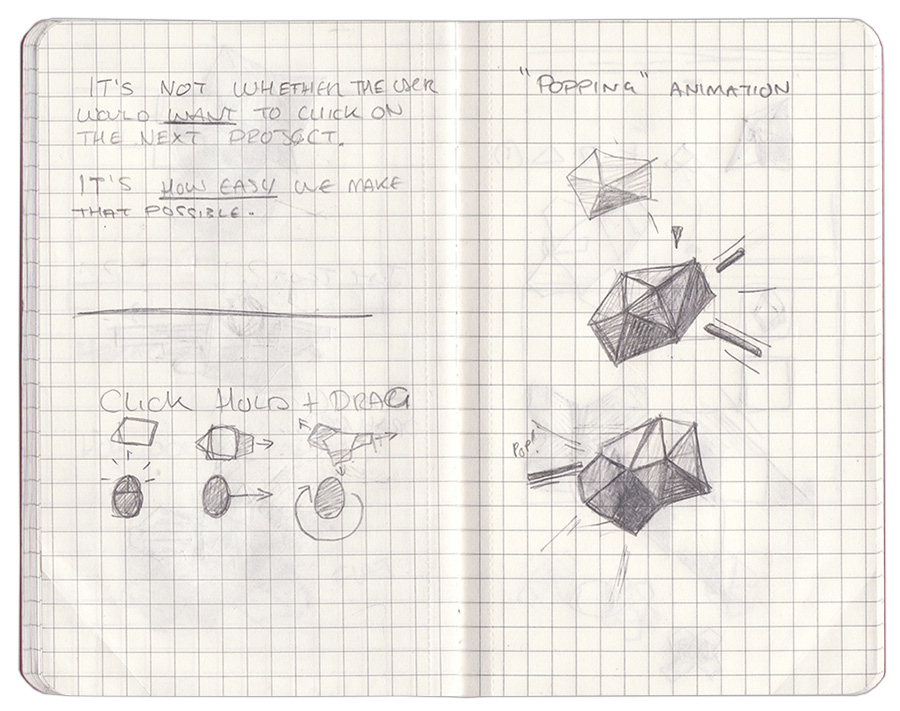 IT'S NOT WHETHER THE USER
WOULD WANT TO CLICK ON
THE NEXT PROJECT.
IT'S HOW EASY WE MAKE
THAT POSSIBLE.
CLICK HOLD + DRAG
"POPPING" ANIMATION
POP!